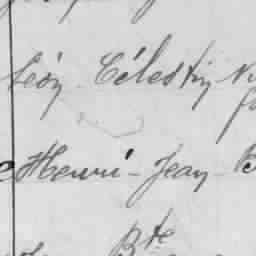 Léon Célestin
Henri - Jean
Bte